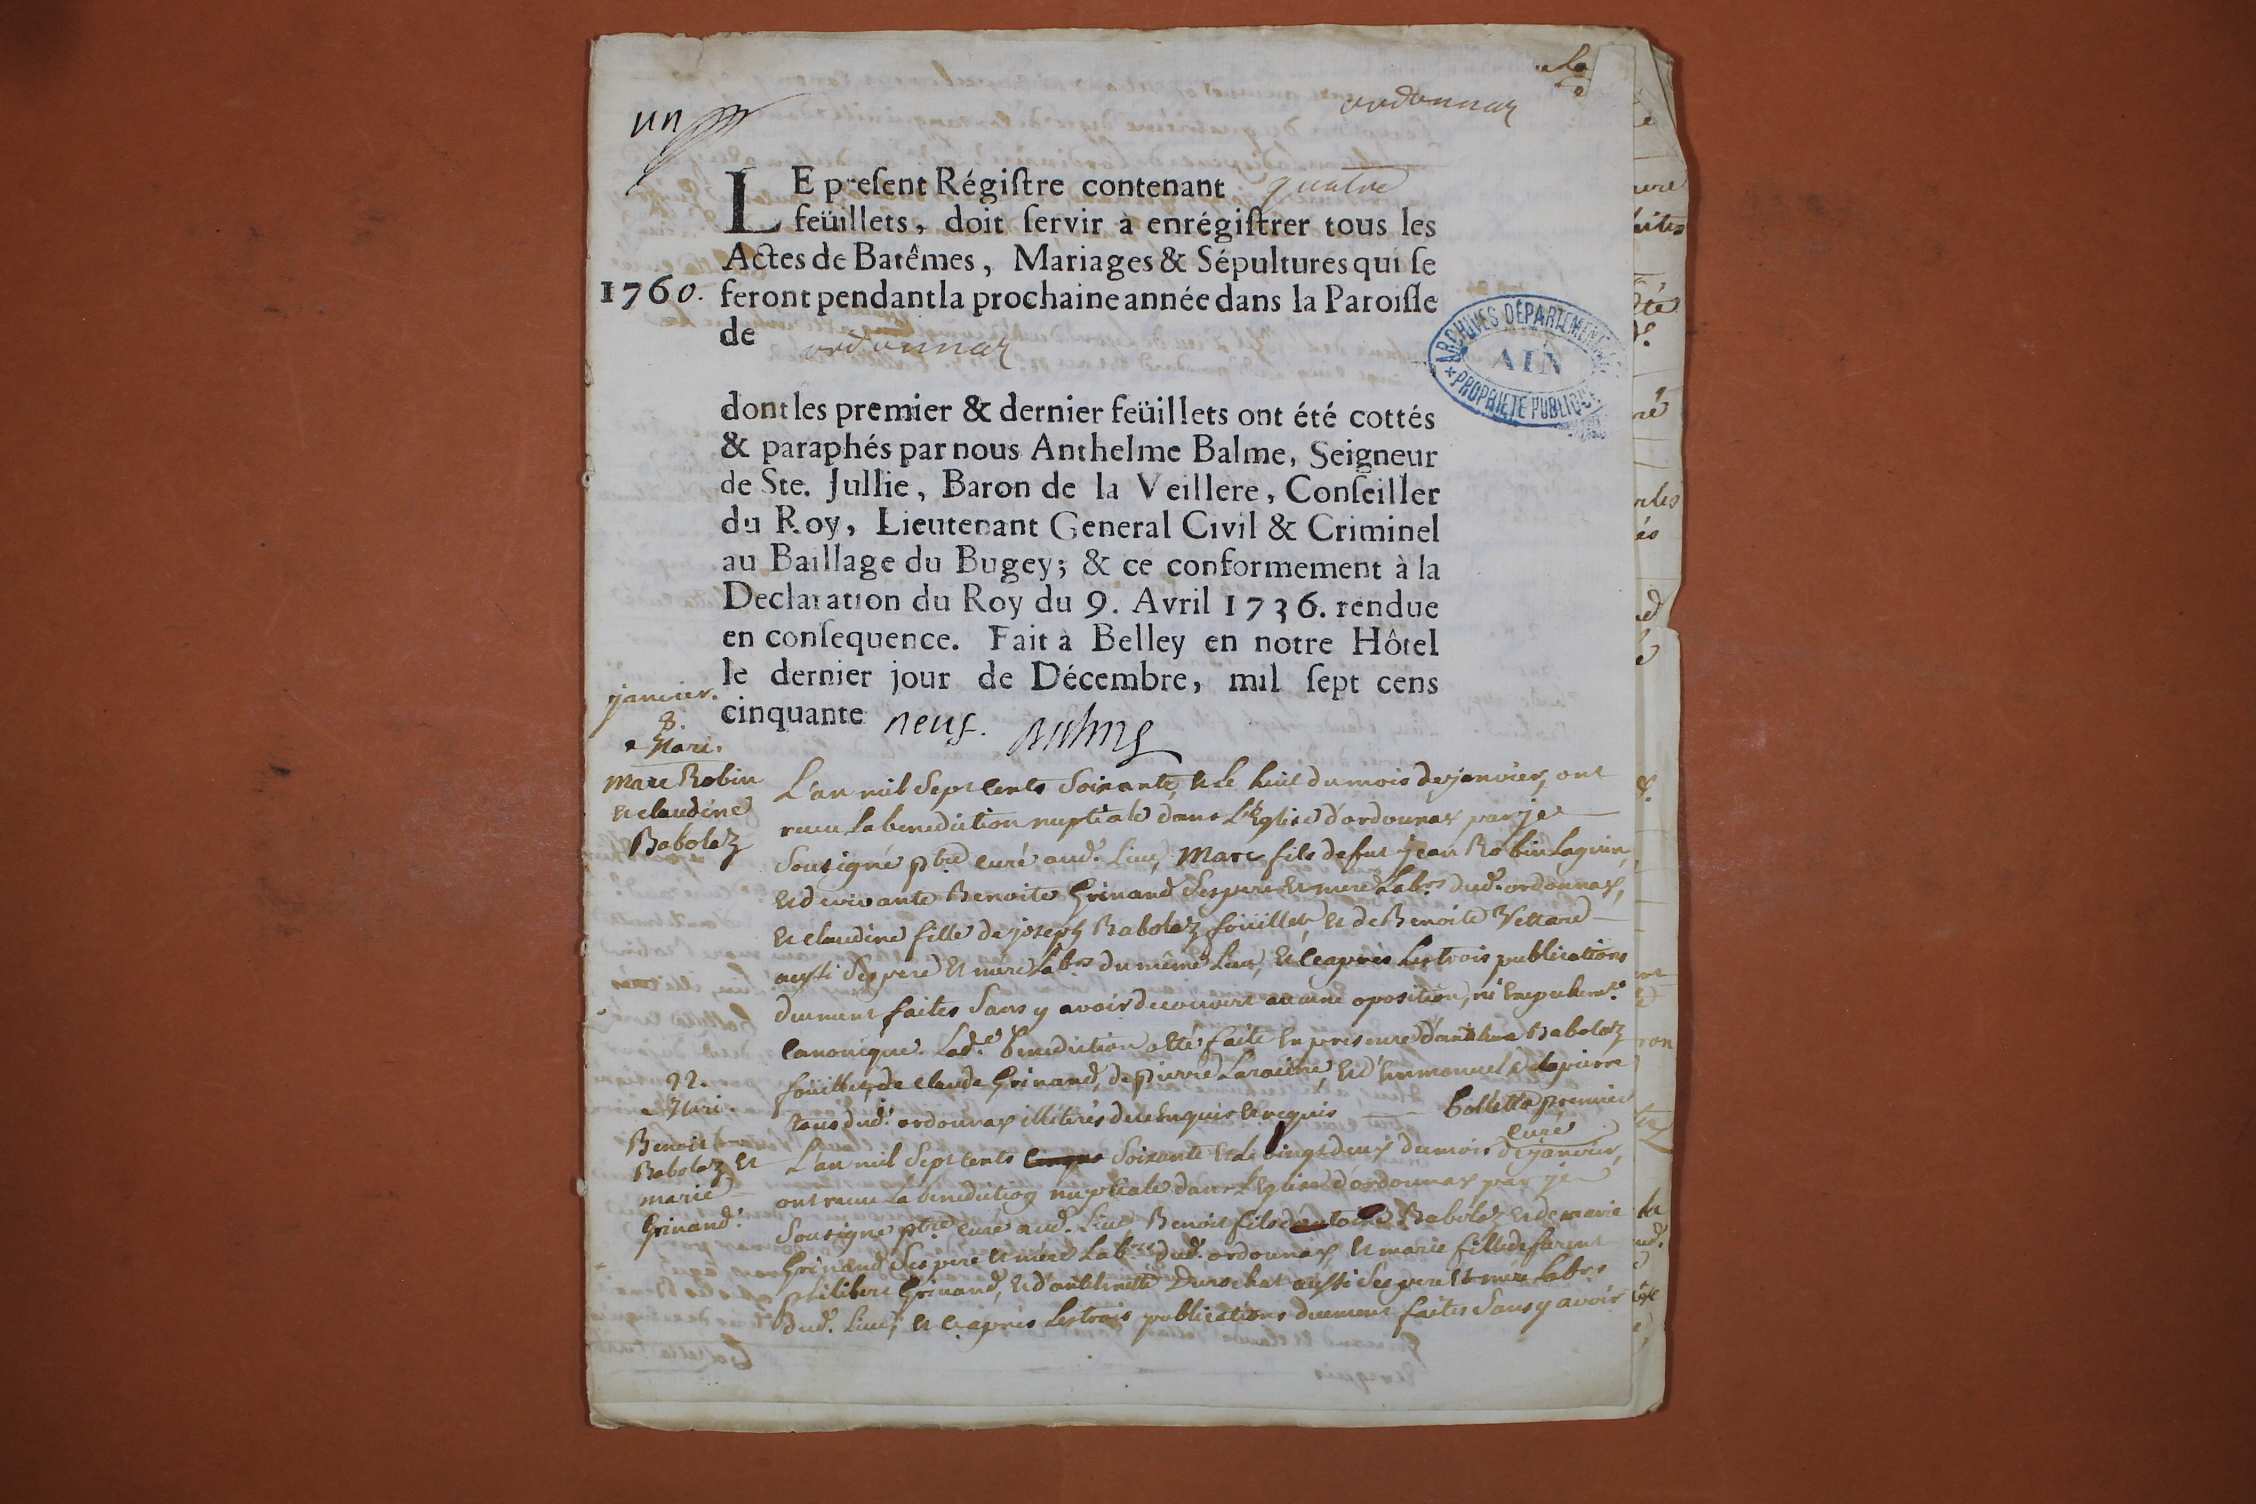 un
ordonnaz
LE present Régistre contenant quatre
feüillets, doit servir à enrégistrer tous les
Actes de Batêmes, Mariages & Sépultures qui se
1760. feront pendant la prochaine année dans la Paroisse
de ordonnaz
ARCHIVES DÉPARTEMENTALES
AIN
* PROPRIÉTÉ PUBLIQUE
dont les premier & dernier feüillets ont été cottés
& paraphés par nous Anthelme Balme, Seigneur
de Ste. Jullie, Baron de la Veillere, Conseiller
du Roy, Lieutenant General Civil & Criminel
au Baillage du Bugey; & ce conformement à la
Declaration du Roy du 9. Avril 1736. rendue
en consequence. Fait à Belley en notre Hôtel
le dernier jour de Décembre, mil sept cens
cinquante neuf. Balme
janvier.
8.
Mari.
Marc Robin
et claudine
Babolaz
L'an mil Sept Cents Soixante, et le huit du mois de janvier, ont
recu La benediction nuptiale dans L'Eglise d'ordonnax par je
Sousigné ptre curé aud. Lieu, Marc fils defut jean Robin Laguin,
et de vivante Benoite Grinand Ses pere et mere Labrs dud. ordonnax,
et claudine fille de joseph Babolaz fouillet, et de Benoite Vettard
aussi Ses pere et mere Labrs du même Lieu, et ce apres Les trois publications
duement faites Sans y avoir decouvert aucune oposition, ni Empechemt.
Canonique. Lade. benediction a été faite En presence d'anthme Babolaz
fouillet, de claude Grinand, de pierre Laracine, et d'Emmanuel delapierre
tous dud. ordonnax illiterés de ce Enquis et requis Collette premier
curé
22.
Mari.
Benoit
Babolaz et
marie
Grinand.
L'an mil Sept Cents Soixante et le vingt deux du mois de janvier,
ont recu La benediction nuptiale dans L'Eglise d'ordonnax par je
Sousigné ptre curé aud. Lieu Benoit fils d'antoine Babolaz et de marie
Grinand Ses pere et mere Labrs dud. ordonnax, et marie fille defurent
philibert Grinand, et d'anthelmette Durochat aussi Ses pere et mere Labrs
dud. Lieu; et ce apres Les trois publications duement faites Sans y avoir